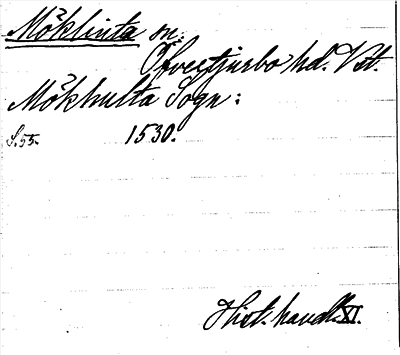 Möklinta sn.
Öfvertjurbo hd. Vstt.
Mökhulta Sogn:
S. 55. 1530.
Hist. handl. XI.